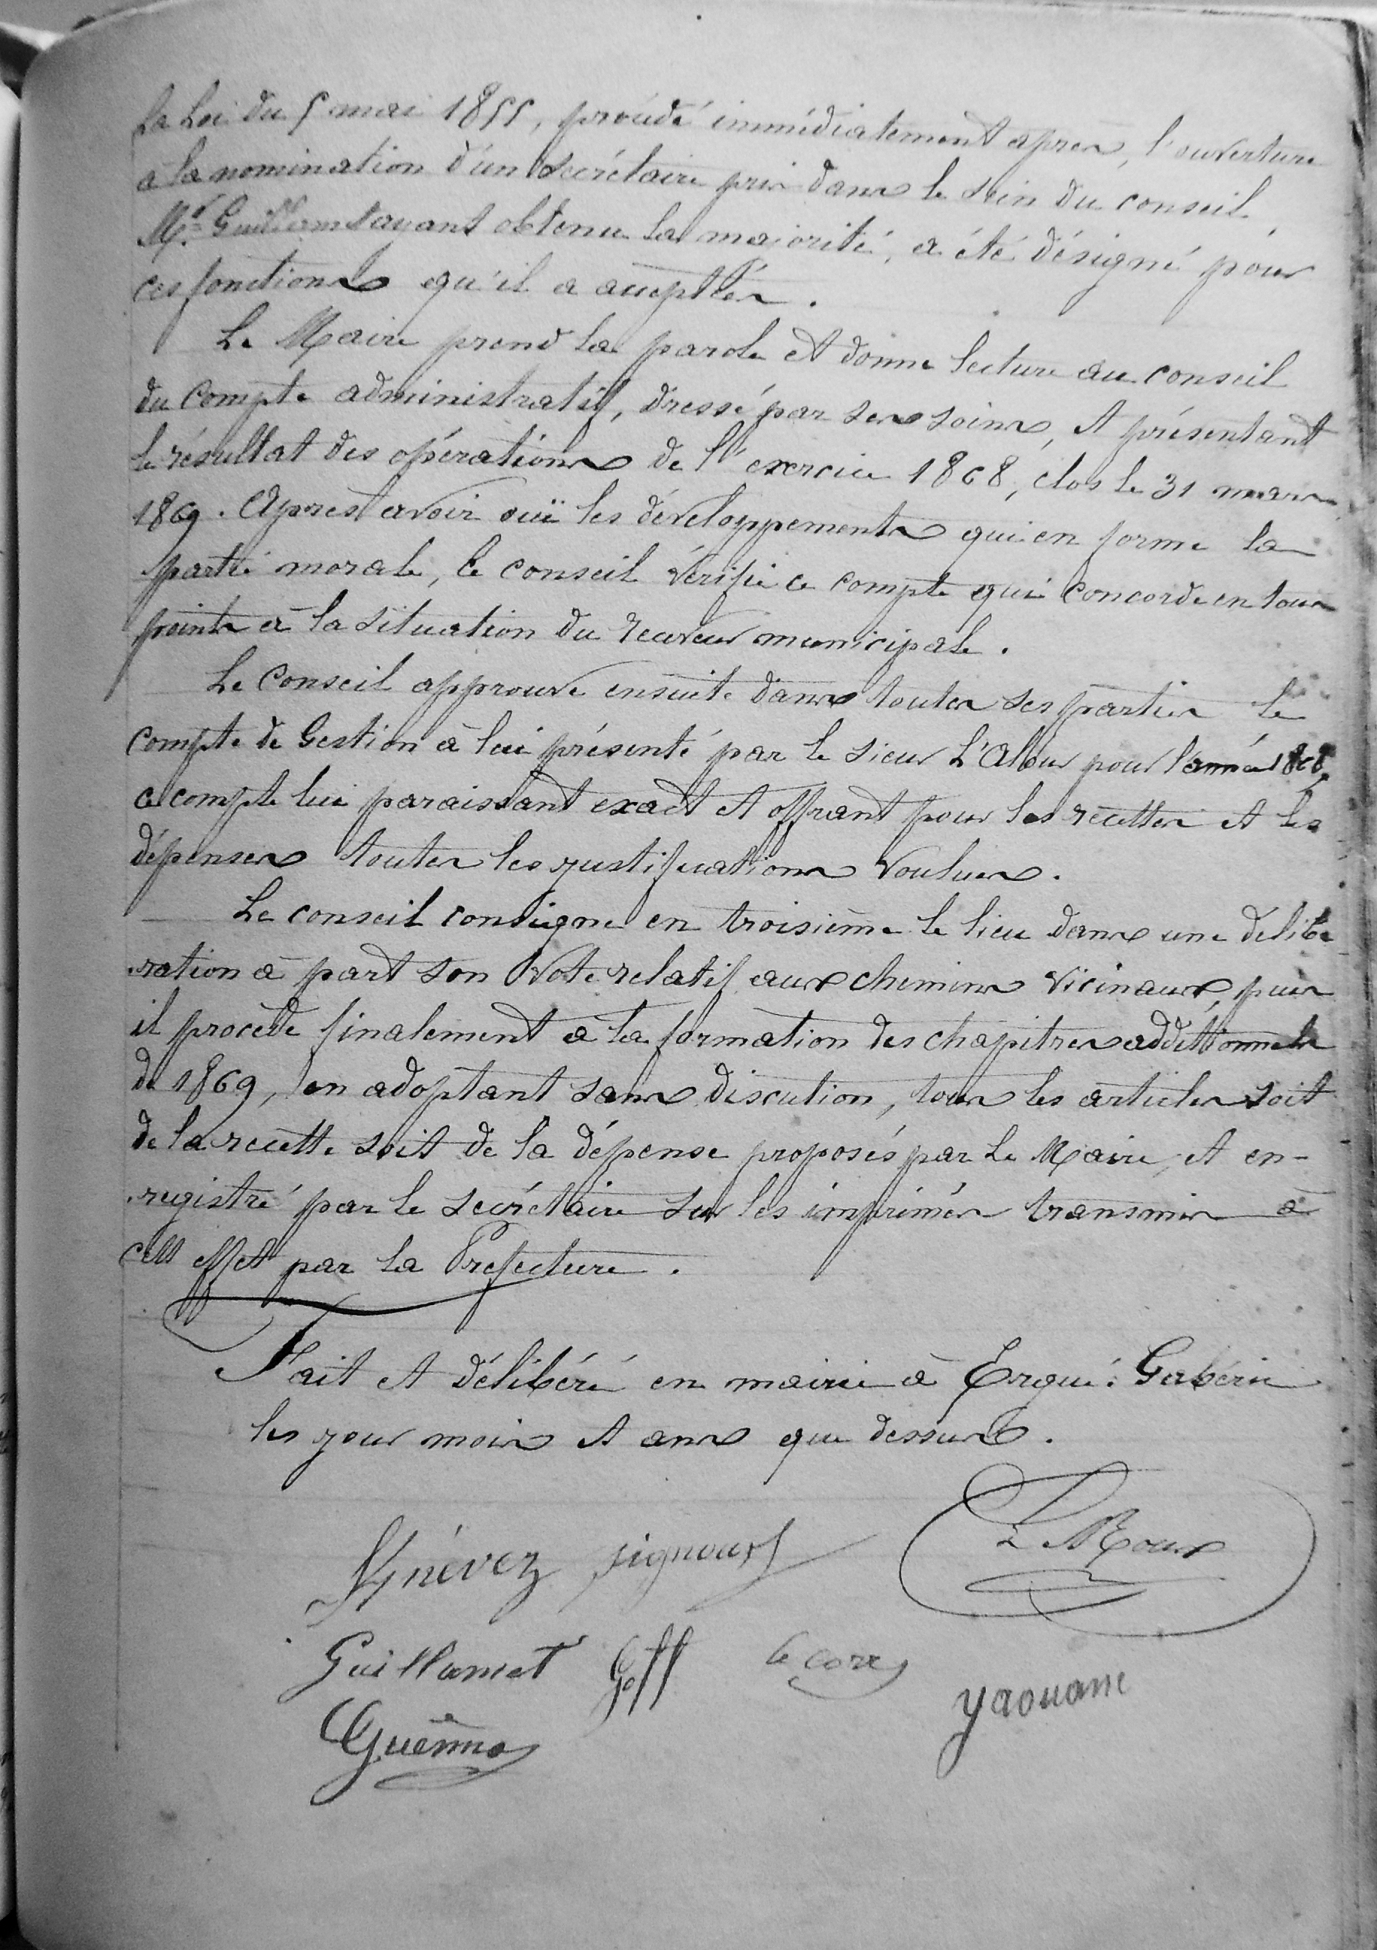 la Loi du 5 mai 1855, procédé immédiatement après, l'ouverture
à la nomination d'un secrétaire pris dans le sein du conseil
Mr. Guillamet ayant obtenu la majorité, a été désigné pour
ces fonctions qu'il a acceptées.
Le Maire prend la parole et donne lecture au conseil
du compte administratif, dressé par ses soins, et présentant
le résultat des opérations de l'exercice 1868, clos le 31 mars
1869. Après avoir ouï les développements qui en forme la
partie morale, le conseil vérifie ce compte qui concorde en tous
points à la situation du receveur municipale.
Le Conseil approuve ensuite dans toutes ses parties le
compte de Gestion à lui présenté par le sieur L'Alour pour l'année 1868,
ce compte lui paraissant exact et offrant pour les recettes et les
dépenses toutes les justifications voulues.
Le conseil consigne en troisième le lieu dans une délibé
ration à part son Vote relatif aux chemins vicinaux, puis
il procède finalement à la formation des chapitres addittionnels
de 1869, en adoptant sans discution, tous les articles soit
de la recette soit de la dépense proposés par Le Maire, et en-
registré par le secrétaire sur les imprimés transmis à
cett effet par la Préfecture.
Fait et délibéré en mairie à Ergué-Gabéric
les jour mois et ans que dessus.
Le Roux
Guillamet Goff Le Corre
Yaouanc
Guenno